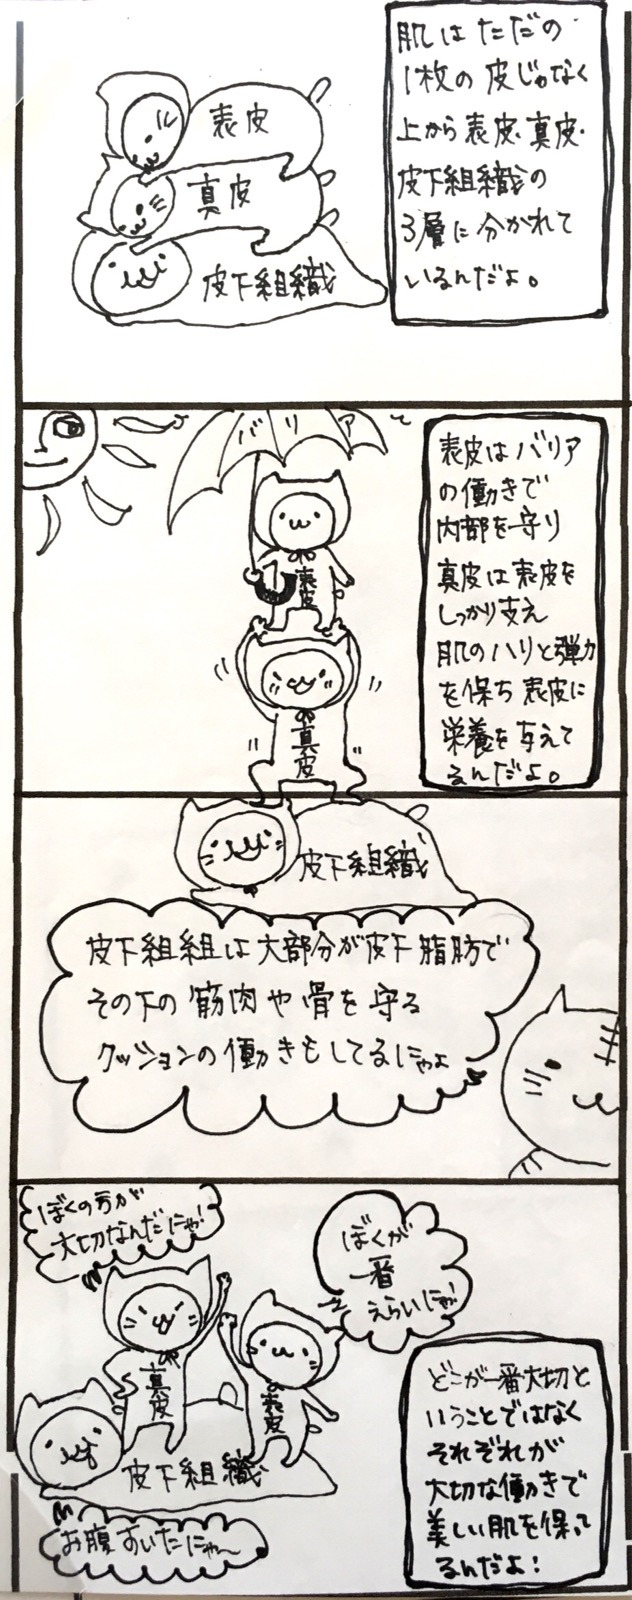 肌はただの
1枚の皮じゃなく
上から表皮、真皮、
皮下組織の
3層に分かれて
いるんだよ。
表皮
真皮
皮下組織
バリア
表皮はバリア
の働きで
内部を守り
真皮は表皮を
しっかり支え
肌のハリと弾力
を保ち表皮に
栄養を与えて
るんだよ。
表皮
真皮
皮下組織
皮下組組は大部分が皮下脂肪で
その下の筋肉や骨を守る
クッションの働きもしてるにゃよ
ぼくの方が
大切なんだにゃ!
ぼくが
一番
えらいにゃ!
真皮
表皮
皮下組織
お腹すいたにゃ〜
どこが一番大切と
いうことではなく
それぞれが
大切な働きで
美しい肌を保って
るんだよ!